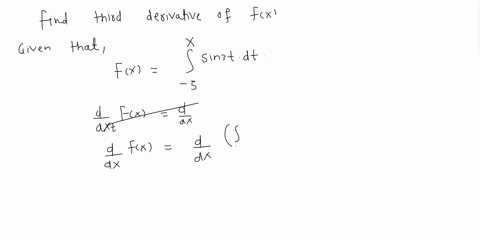 Find third derivative of F(x)
Given that,
F(x) = ∫_{-5}^{x} sin7t dt.
d/dxt F(x) = d/dx
d/dx F(x) = d/dx (∫